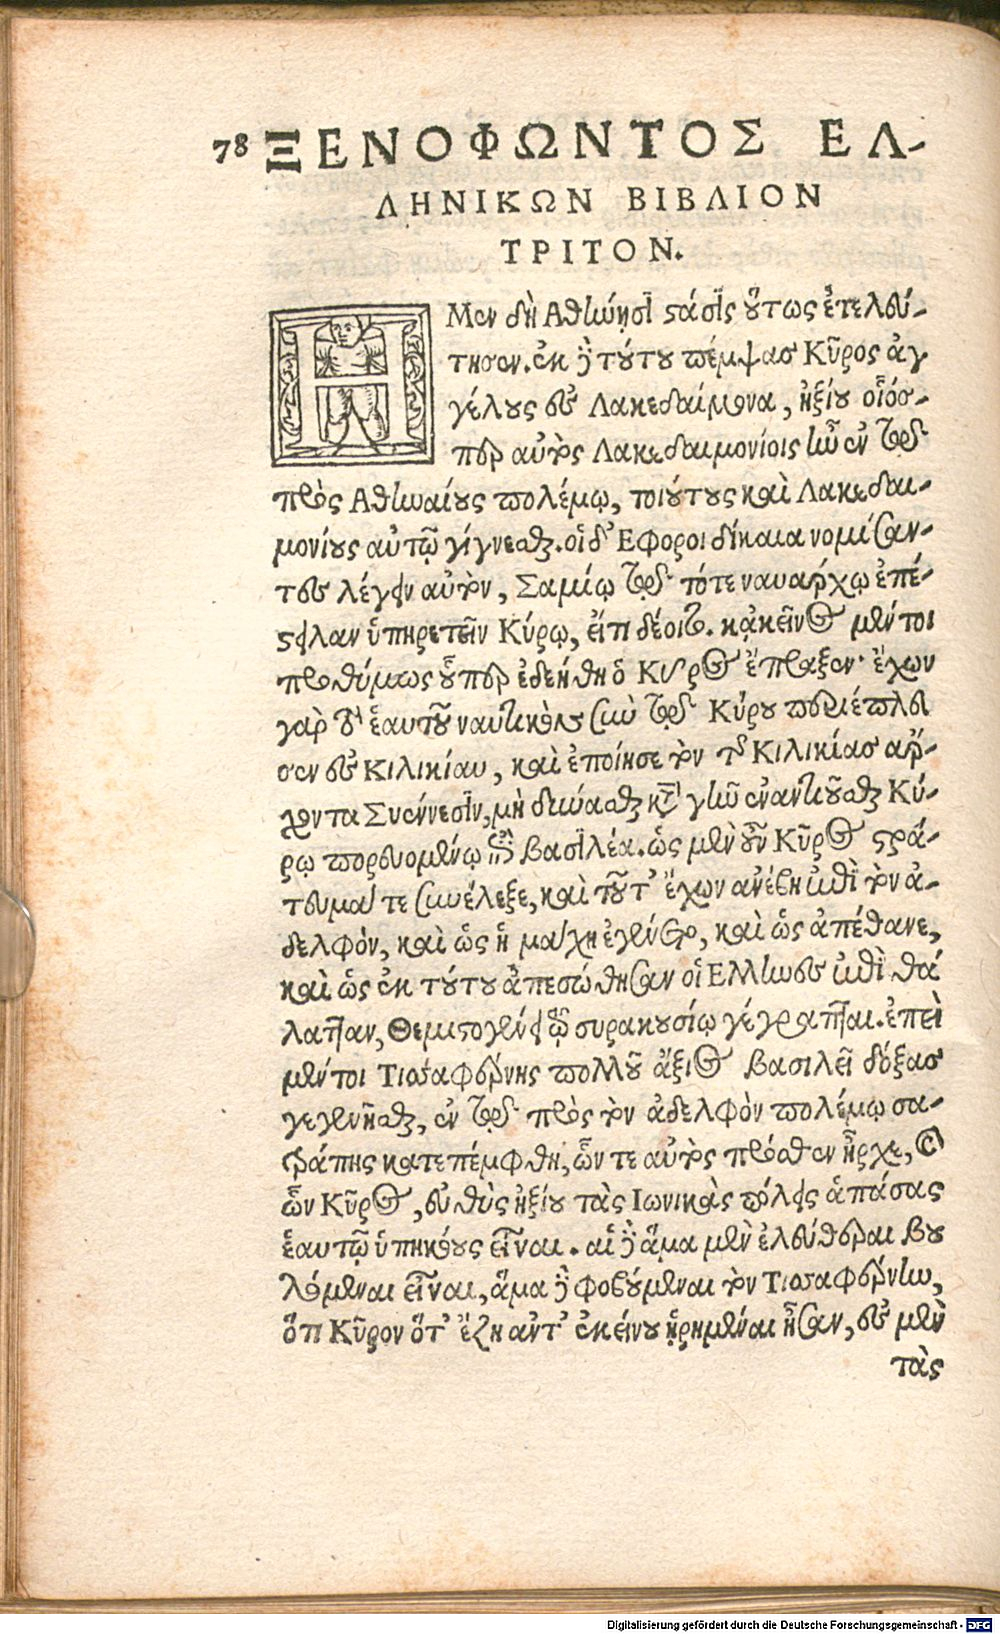 78 ΞΕΝΟΦΩΝΤΟΣ ΕΛ-
ΛΗΝΙΚΩΝ ΒΙΒΛΙΟΝ
ΤΡΙΤΟΝ.
Η Μὲν δὴ Ἀθήνησι στάσις οὕτως ἐτελεύ-
τησεν. ἐκ δὲ τούτου πέμψας Κῦρος ἀγ
γέλους εἰς Λακεδαίμονα, ἠξίου οἷόσ-
περ αὐτὸς Λακεδαιμονίοις ἦν ἐν τῷ
πρὸς Ἀθηναίους πολέμῳ, τοιούτους καὶ Λακεδαι-
μονίους αὐτῷ γίγνεσθαι. οἱ δ' Ἔφοροι δίκαια νομίσαν-
τες λέγειν αὐτὸν, Σαμίῳ τῷ τότε ναυάρχῳ ἐπέ-
στειλαν ὑπηρετεῖν Κύρῳ, εἴ τι δέοιτο. κἀκεῖνος μέντοι
προθύμως οὗπερ ἐδεήθη ὁ Κῦρος ἔπραξεν· ἔχων
γὰρ τὸ ἑαυτοῦ ναυτικὸν σὺν τῷ Κύρου περιέπλευ
σεν εἰς Κιλικίαν, καὶ ἐποίησε τὸν τῆς Κιλικίας ἄρ-
χοντα Συέννεσιν, μὴ δύνασθαι κατὰ γῆν ἐναντιοῦσθαι Κύ-
ρῳ πορευομένῳ ἐπὶ βασιλέα. ὡς μὲν οὖν Κῦρος στρά-
τευμά τε συνέλεξε, καὶ τοῦτ' ἔχων ἀνέβη ἐπὶ τὸν ἀ-
δελφόν, καὶ ὡς ἡ μάχη ἐγένετο, καὶ ὡς ἀπέθανε,
καὶ ὡς ἐκ τούτου ἀπεσώθησαν οἱ Ἕλληνες ἐπὶ θά
λατταν, Θεμιστογένει τῷ συρακουσίῳ γέγραπται. ἐπεὶ
μέντοι Τισσαφέρνης πολλοῦ ἄξιος βασιλεῖ δόξας
γεγενῆσθαι, ἐν τῷ πρὸς τὸν ἀδελφὸν πολέμῳ σα-
τράπης κατεπέμφθη, ὧν τε αὐτὸς πρόσθεν ἦρχε, καὶ
ὧν Κῦρος, εὐθὺς ἠξίου τὰς Ἰωνικὰς πόλεις ἁπάσας
ἑαυτῷ ὑπηκόους εἶναι. αἱ δὲ ἅμα μὲν ἐλεύθεραι βου
λόμεναι εἶναι, ἅμα δὲ φοβούμεναι τὸν Τισσαφέρνην,
ὅτι Κῦρον ὅτ' ἔζη ἀντ' ἐκείνου ᾑρημέναι ἦσαν, εἰς μὲν
τὰς
Digitalisierung gefördert durch die Deutsche Forschungsgemeinschaft - DFG